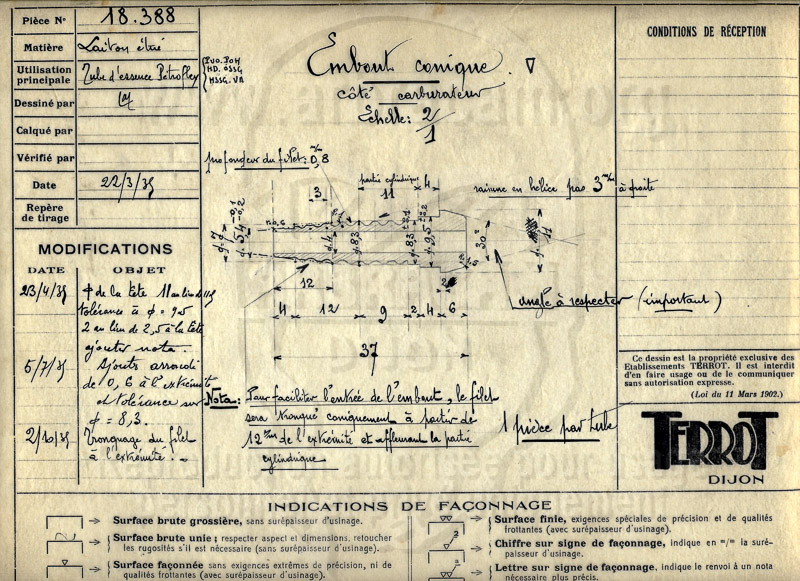 Pièce N° 18.388
Matière Laiton étiré
Utilisation principale Tube d'essence Petroflex
Dessiné par
Calqué par
Vérifié par
Date 22/3/35
Repère de tirage
MODIFICATIONS
DATE OBJET
23/4/35 ϕ de la tête 11 au lieu de
tolérance à ϕ = 9,5
2 au lieu de 2,5 à la tête
ajouter nota.
5/7/35 Ajouté arrondi
de 0,6 à l'extrémité
et tolérance sur
ϕ = 8,3.
2/10/35 Tronquage du filet
à l'extrémité.
Embout conique
côté carburateur
Echelle: 2/1
profondeur du filet: 0,8
partie cylindrique
3 11 4
rainure en hélice pas 3 m/m à droite
12 2
4 12 9 2 4 6
37
angle à respecter (important)
Nota: Pour faciliter l'entrée de l'embout, le filet
sera tronqué coniquement à partir de
12 m/m de l'extrémité et affleurant la partie
cylindrique
1 pièce par tube
CONDITIONS DE RÉCEPTION
Ce dessin est la propriété exclusive des
Etablissements TERROT. Il est interdit
d'en faire usage ou de le communiquer
sans autorisation expresse.
(Loi du 11 Mars 1902.)
TERROT
DIJON
INDICATIONS DE FAÇONNAGE
Surface brute grossière, sans surépaisseur d'usinage.
Surface brute unie; respecter aspect et dimensions, retoucher
les rugosités s'il est nécessaire (sans surépaisseur d'usinage).
Surface façonnée sans exigences extrêmes de précision, ni de
qualités frottantes (avec surépaisseur d'usinage).
Surface finie, exigences spéciales de précision et de qualités
frottantes (avec surépaisseur d'usinage).
Chiffre sur signe de façonnage, indique en m/m la suré-
paisseur d'usinage.
Lettre sur signe de façonnage, indique le renvoi à un nota
nécessaire plus précis.